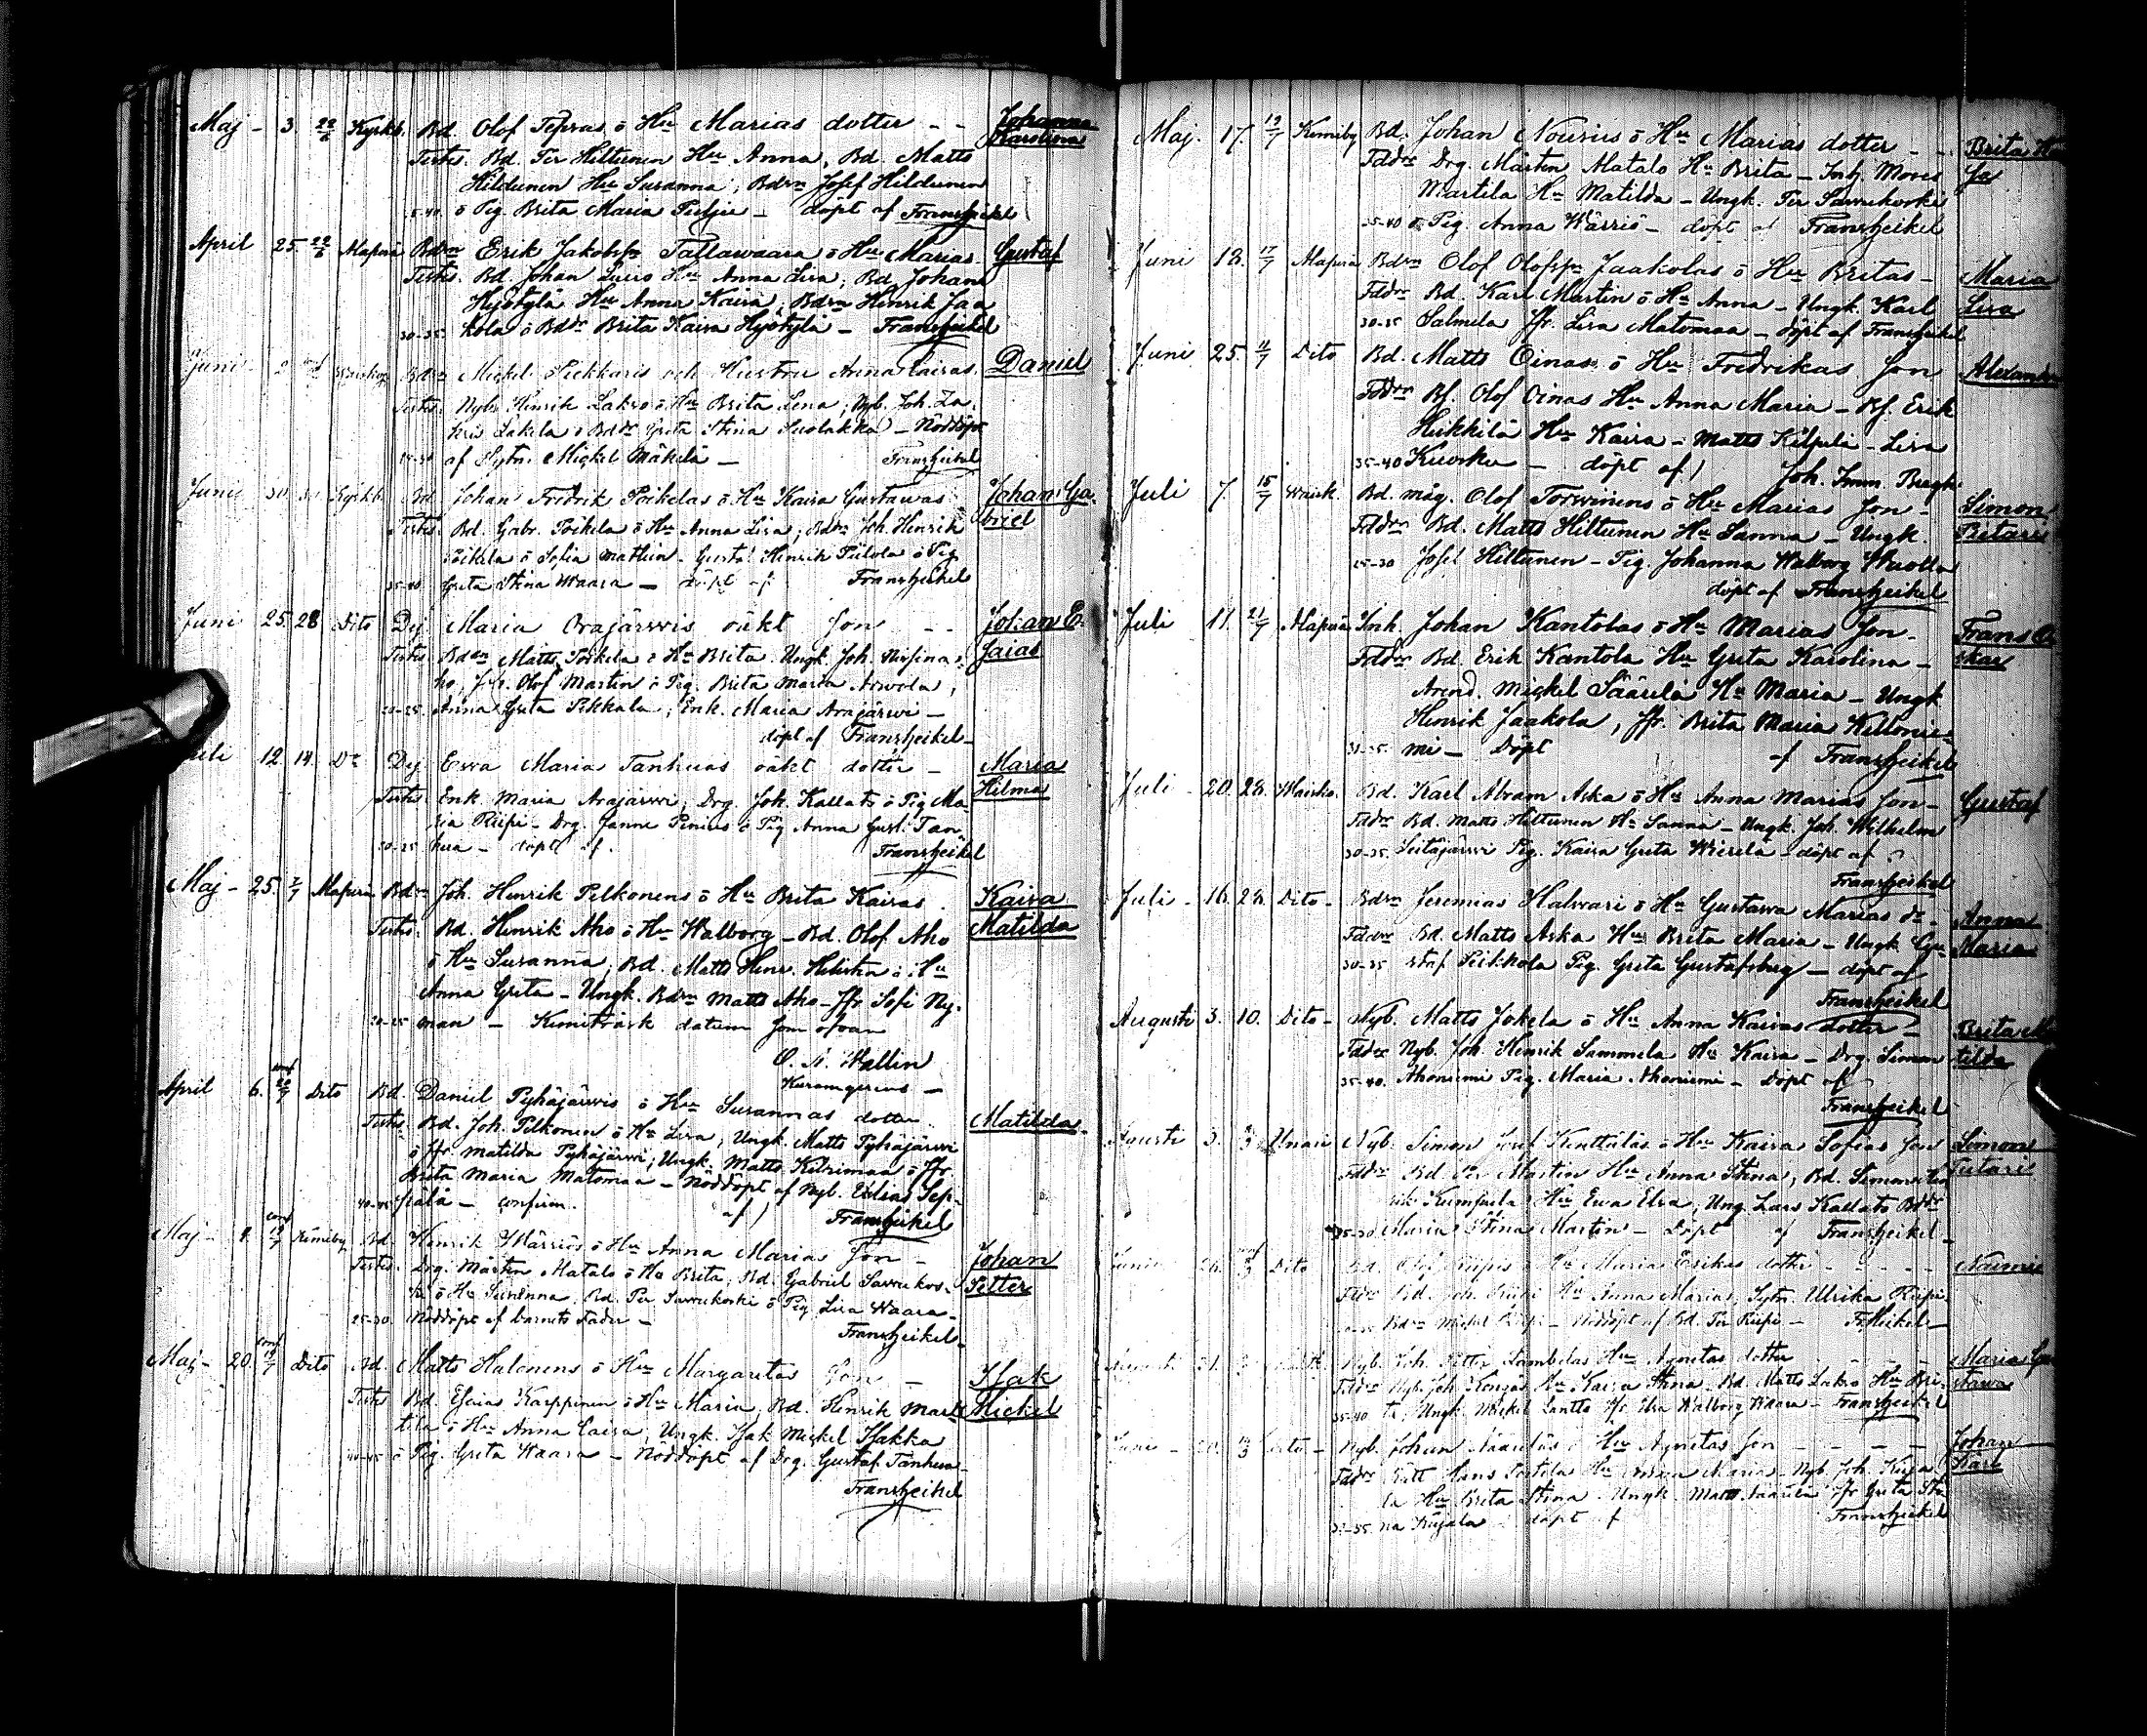 Maj - 3. 22/6 Kyrkb. Bd. Olof Tepsas ö Hu Marias dotter - - Johanna
Testes. Bd. Per Hiltunen Hu Anna, Bd. Matts Karolina
Hildunen Hu Susanna; Bdsn Josef Hildunen
35-40. ö Pig. Brita Maria - döpt af Frans Heikel
April 25. 22/6 Alapurä Bdsn Erik Jakobss Tallawaara ö Hu Marias Gustaf
Testes. Bd. Johan Hu Anna Lisa; Bd. Johan
Hyötylä Hu Anna Kaisa; Bdsn Henrik Jaa
30-35. kola ö Bddr Brita Kaisa Hyötylä - Frans Heikel
Juni 2. Bdsn Mickel Pekkaris och Hustru Anna Caisas Daniel
Testes. Nyb. Henrik Lakso ö Hu Brita Lena; Nyb. Joh. Za
kris Lakela ö Bddr Greta Stina Suolakka - Nöddöpt
af Mickel Mäkelä - Frans Heikel
Juni 30. Kyrkb. Bd. Johan Fredrik Poikelas ö Hu Kaisa Gustawas Johan Ga
Testes. Bd. Gabr. Poikela ö Hu Anna Lisa; Bdsn Joh. Henrik briel
Poikela ö Sofia - Gust. Henrik ö Pig
35-40. Greta Stina Waara - döpt af Frans Heikel
Juni 25. 28 Dito Pig Maria Orajärwis oäkt Son - - Johan E-
Testes. Bdsn Matts Poikela ö Hu Brita. Ungk. Joh. saias
Olof Martin ö Pig. Brita Maria
20-25. Anna Greta Pekkala; Enk. Maria Arajärwi -
döpt af Frans Heikel -
Juli 12. 14. Do Pig Ewa Maria Tanhuas oäkt dotter - Maria
Testes. Enk. Maria Arajärwi; Drg. Joh. Kallats ö Pig Ma- Hilma
ria Riipi - Drg. Janne ö Pig Anna Gust. Tan
20-25 hua - döpt af. Frans Heikel
Maj - 25. 2/7 Alapurä Bdsn Joh. Henrik Pelkonens ö Hu Brita Kaisas. Kaisa
Testes. Bd. Henrik Aho ö Hu Walborg - Bd. Olof Aho Matilda
ö Hu Susanna; Bd. Matts Henr. ö Hu
Anna Greta - Ungk. Bdsn Matts Aho - Jfr Sofi Ny-
20-25 man - Kemiträsk datum som ofvan
O. A. Wallin
April 6. conf 20/7 Dito Bd. Daniel Pyhäjärwis ö Hu Susannas dotter Matilda.
Testes. Bd. Joh. Pelkonen ö Hu Lisa; Ungk. Matts Pyhäjärwi
ö Jfr Matilda Pyhäjärwi; Ungk. Matts ö Jfr
Brita Maria Matomaa - Nöddöpt af Nyb. Elias Sep-
40-45 pälä - confirm. af Frans Heikel
Maj - 9. conf 19/7 Kemiby Bd. Henrik Wärriös ö Hu Anna Marias Son - Johan
Testes. Drg. Märten Matalo ö Hu Brita; Bd. Gabriel Sawukos- Petter
ki ö Hu Susanna. Bd. Per Sawukoski ö Pig Lisa Waara -
25-30. Nöddöpt af barnets Fader - Frans Heikel -
Maj - 20. conf 19/7 Dito Bd. Matts Halonens ö Hu Margaretas Son - Isak
Testes Bd. Esaias Karppinen ö Hu Maria; Bd. Henrik Mart Mickel
tila ö Hu Anna Caisa; Ungk. Isak Mickel Isakka
40-45 ö Pig. Greta Waara - Nöddöpt af Drg. Gustaf Tanhua -
Frans Heikel
Maj. 17. 19/7 Kemiby Bd. Johan Nousus ö Hu Marias dotter - - Brita
Faddr Drg. Märten Matalo Hu Brita - Inh. Moses
Martila Hu Matilda - Ungk. Per Sawukoski
35-40 ö Pig. Anna Wärriö - döpt af Frans Heikel
Juni 12. 17/7 Alapurä Bdsn Olof Olofss Jaakolas ö Hu Britas - Maria
Faddr Bd. Karl Martin ö Hu Anna - Ungk. Karl Lisa
30-35 Salmela Jfr. Lisa Matomaa - döpt af Frans Heikel
Juni 25. 11/7 Dito Bd. Matts Oinas ö Hu Fredrikas Son Alexander
Faddr Bf. Olof Oinas Hu Anna Maria - Bf. Erik
Heikkilä Hu Kaisa - Matts Kilpeli - Lisa
35-40 Kuosku - döpt af Joh. Imm. Bergh
Juli 7. 15/7 Waisk. Bd. måg. Olof Torwinens ö Hu Marias Son - Simon
Faddr Bd. Matts Hiltunen Hu Sanna - Ungk. Pietari
25-30 Josef Hiltunen - Pig. Johanna Walborg Wuolla
döpt af Frans Heikel
Juli 11. 21/7 Alapurä Inh. Johan Kantolas ö Hu Marias Son - Frans O-
Faddr Bd. Erik Kantola Hu Greta Karolina - skar
Arend. Mickel Säärelä Hu Maria - Ungk
Henrik Jaakola, Jfr. Brita Maria Keltonie-
mi - döpt af Frans Heikel
Juli - 20. 28. Waisko. Bd. Karl Abram Aska ö Hu Anna Marias Son - Gustaf
Faddr Bd. Matts Hiltunen Hu Sanna - Ungk. Joh. Wilhelm
30-35. Seitajärwi Pig. Kaisa Greta Wierelä - döpt af
Frans Heikel
Juli - 16. 28. Dito - Bdsn Jeremias Halwari ö Hu Gustawa Marias dr - Anna
Faddr Bd. Matts Aska Hu Brita Maria - Ungk Gu- Maria
30-35 staf Peikkola Pig. Greta Gustafsberg - döpt af
Frans Heikel
Augusti 3. 10. Dito - Nyb. Matts Jokela ö Hu Anna Kaisas Dotter - Brita Ma
Faddr Nyb. Joh. Henrik Sammela Hu Kaisa - Drg. Simon tilda
35-40. Ahoniemi Pig. Maria Ahoniemi - döpt af
Frans Heikel
Agusti 3. Unari Nyb. Simon Josef Kenttäläs ö Hu Kaisa Sofias Son Simon
Faddr Bd. Per Martin Hu Anna Stina; Bd. Simon Hen Pietari
rik Kumpula Hu Ewa Elsa; Ung. Lars Kallats Bddr
25-30 Maria Stina Martin - Döpt af Frans Heikel -
Juni 26. Dito Bd. Olof Riipis ö Hu Maria Erikas dotter - - - Naimi
Faddr Bd. Joh. Riipi Hu Anna Maria; Ulrika Riipi
Bdsn Mickel Riipi - Nöddöpt af Bd. Per Riipi - Fr. Heikel -
Augusti 21. Nyb. Joh. Petter Lambelas Hu Agnetas dotter - - Maria Gu
Faddr Nyb. Joh. Kongäs Hu Kaisa Stina - Bd. Matts Lakso Hu Bri- stawa
35-40 ta; Ungk. Mickel Lantto Jfr Elsa Walborg Waara - Frans Heikel
Juni - 20. Dito - Nyb. Johan Hu Agnetas Son - - - - Johan
Faddr Hans Hu Maria - Nyb. Joh. Karl
la Hu Brita Stina - Ungk. Matts Jfr Greta Sti
na Kujala döpt af Frans Heikel